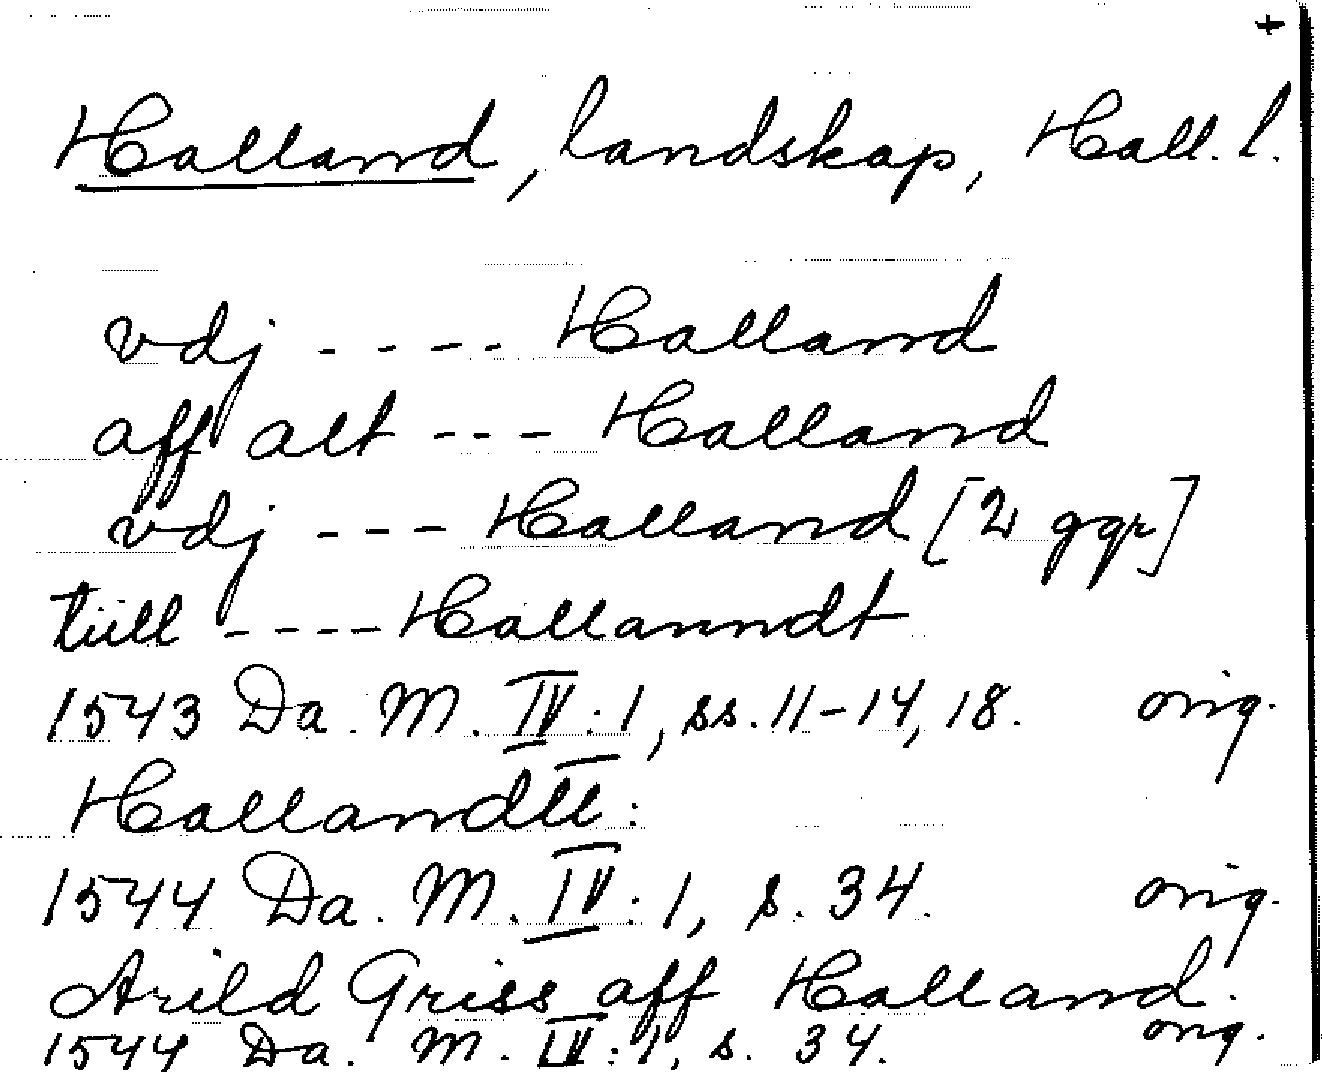 +
Halland, landskap, Hall. l.
vdj ---- Halland
aff alt --- Halland
vdj --- Halland [2 ggr]
tiill ---- Hallanndt
1543 Da. M. IV:1, ss. 11-14, 18. orig.
Hallandtt:
1544 Da. M. IV:1, s. 34. orig.
Arild Griss aff Halland.
1544 Da. M. IV:1, s. 34. orig.